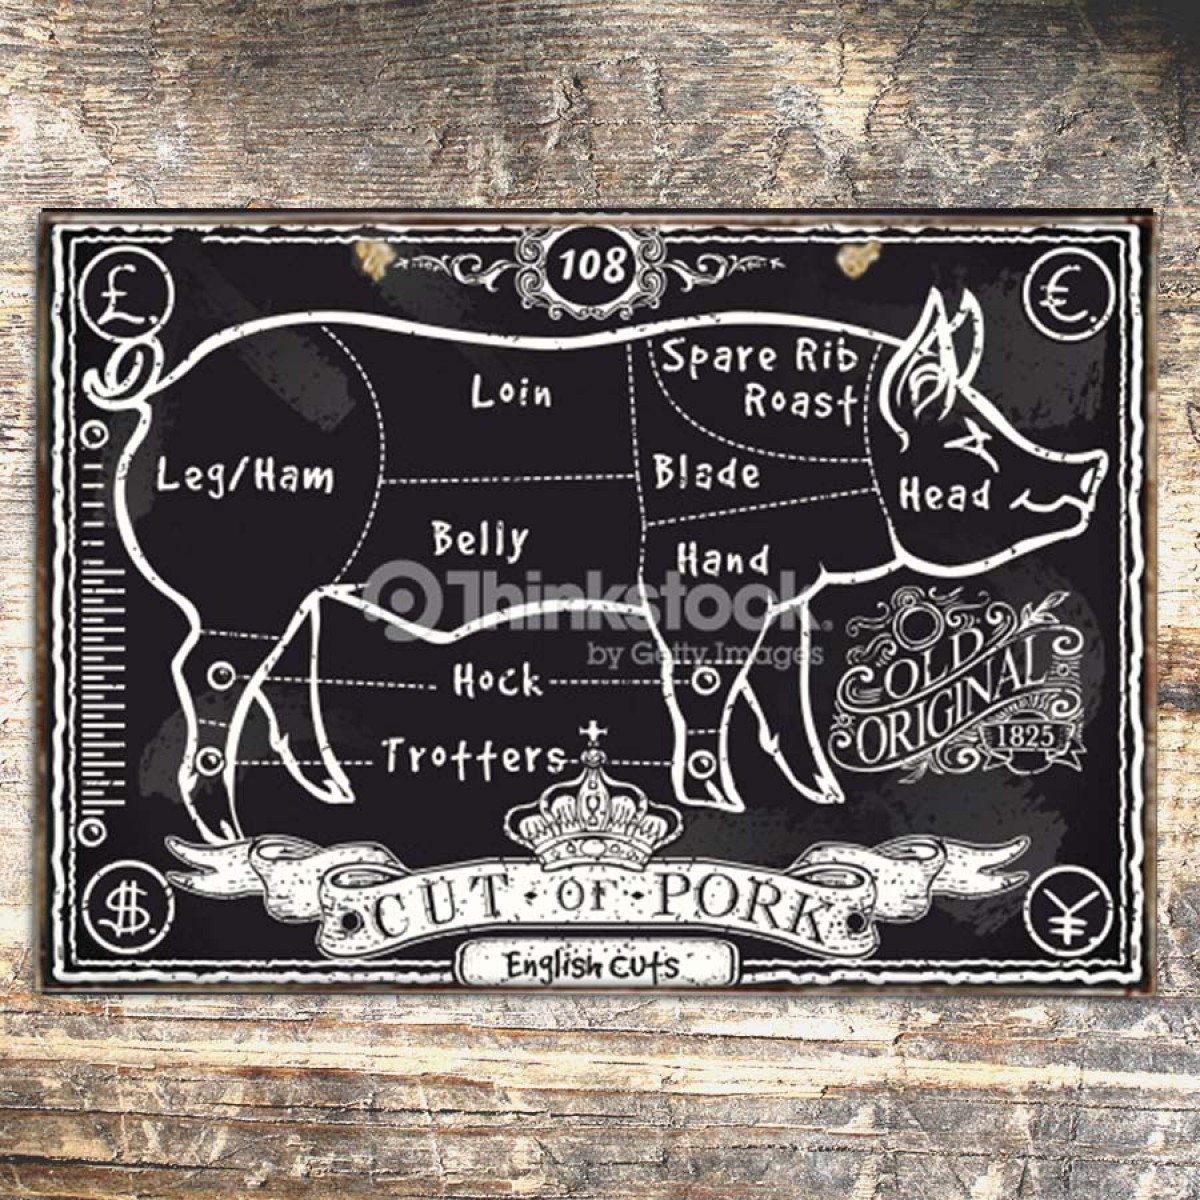 108
£.
€.
Spare Rib
Roast
Loin
Leg/Ham
Blade
Head
Belly
Hand
Thinkstock.
by Getty Images
Hock
OLD
ORIGINAL
1825
Trotters
CUT • OF • PORK
$.
¥.
English cuts